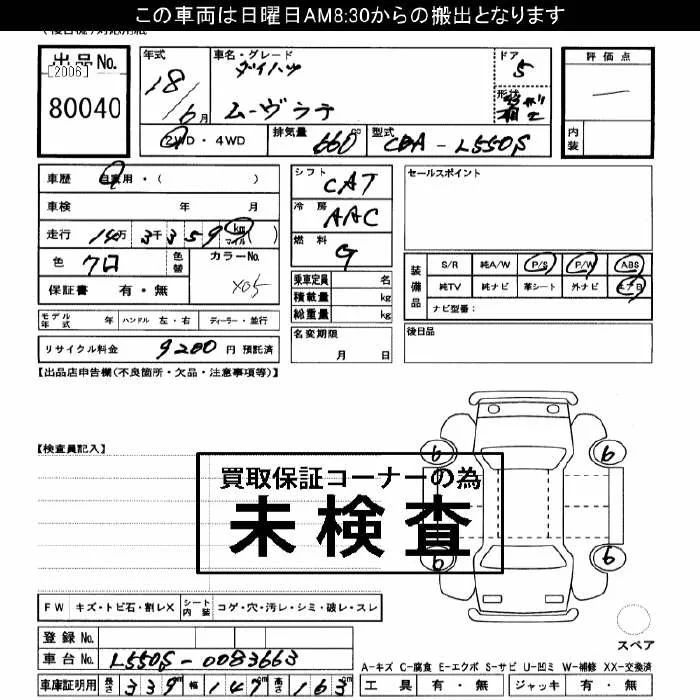 この車両は日曜日AM8:30からの搬出となります
出品No.
[2006]
80040
年式
18/6月
車名・グレード
ダイハツ
ムーヴラテ
ドア
5
形状
評価点
内装
2WD・4WD
排気量 660 cc
型式 CBA-L550S
車歴 自家用・( )
車検 年 月
走行 14万3千359 km マイル ( )
色 クロ
色替
カラーNo.
X05
保証書 有・無
モデル年式 年 ハンドル 左・右 ディーラー・並行
リサイクル料金 9200 円 預託済
シフト
CAT
冷房
AAC
燃料
G
乗車定員 名
積載量 kg
総重量 kg
名変期限
月 日
セールスポイント
装備品
S/R 純A/W P/S P/W ABS
純TV 純ナビ 革シート 外ナビ エアB
ナビ型番:
後日品
【出品店申告欄(不良箇所・欠品・注意事項等)】
【検査員記入】
買取保証コーナーの為
未検査
6
6
6
6
スペア
FW キズ・トビ石・割レX シート内装 コゲ・穴・汚レ・シミ・破レ・スレ
登録No.
車台No. L550S-0083663
車庫証明用 長さ 339cm 幅 147cm 高さ 163cm
A-キズ C-腐食 E-エクボ S-サビ U-凹ミ W-補修 XX-交換済
工具 有・無 ジャッキ 有・無